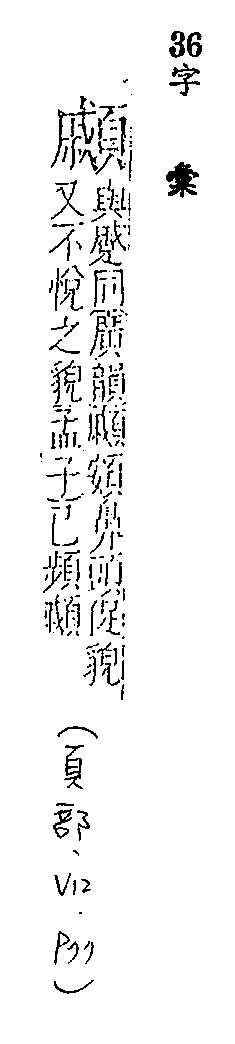 36字彙
顣
與蹙同廣韻顣頞鼻頭促貌
又不悅之貌孟子已頻顣
(頁部、V12.P77)